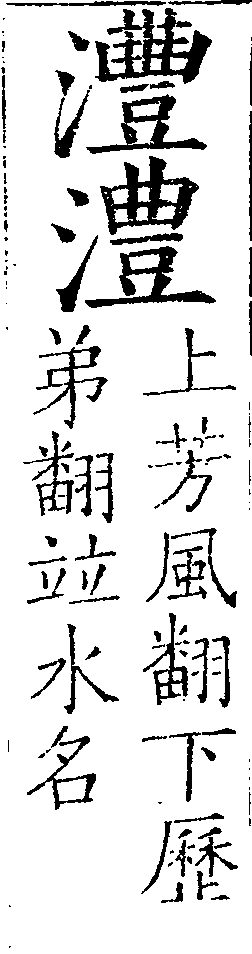 灃澧
上芳風翻下歷
弟翻竝水名